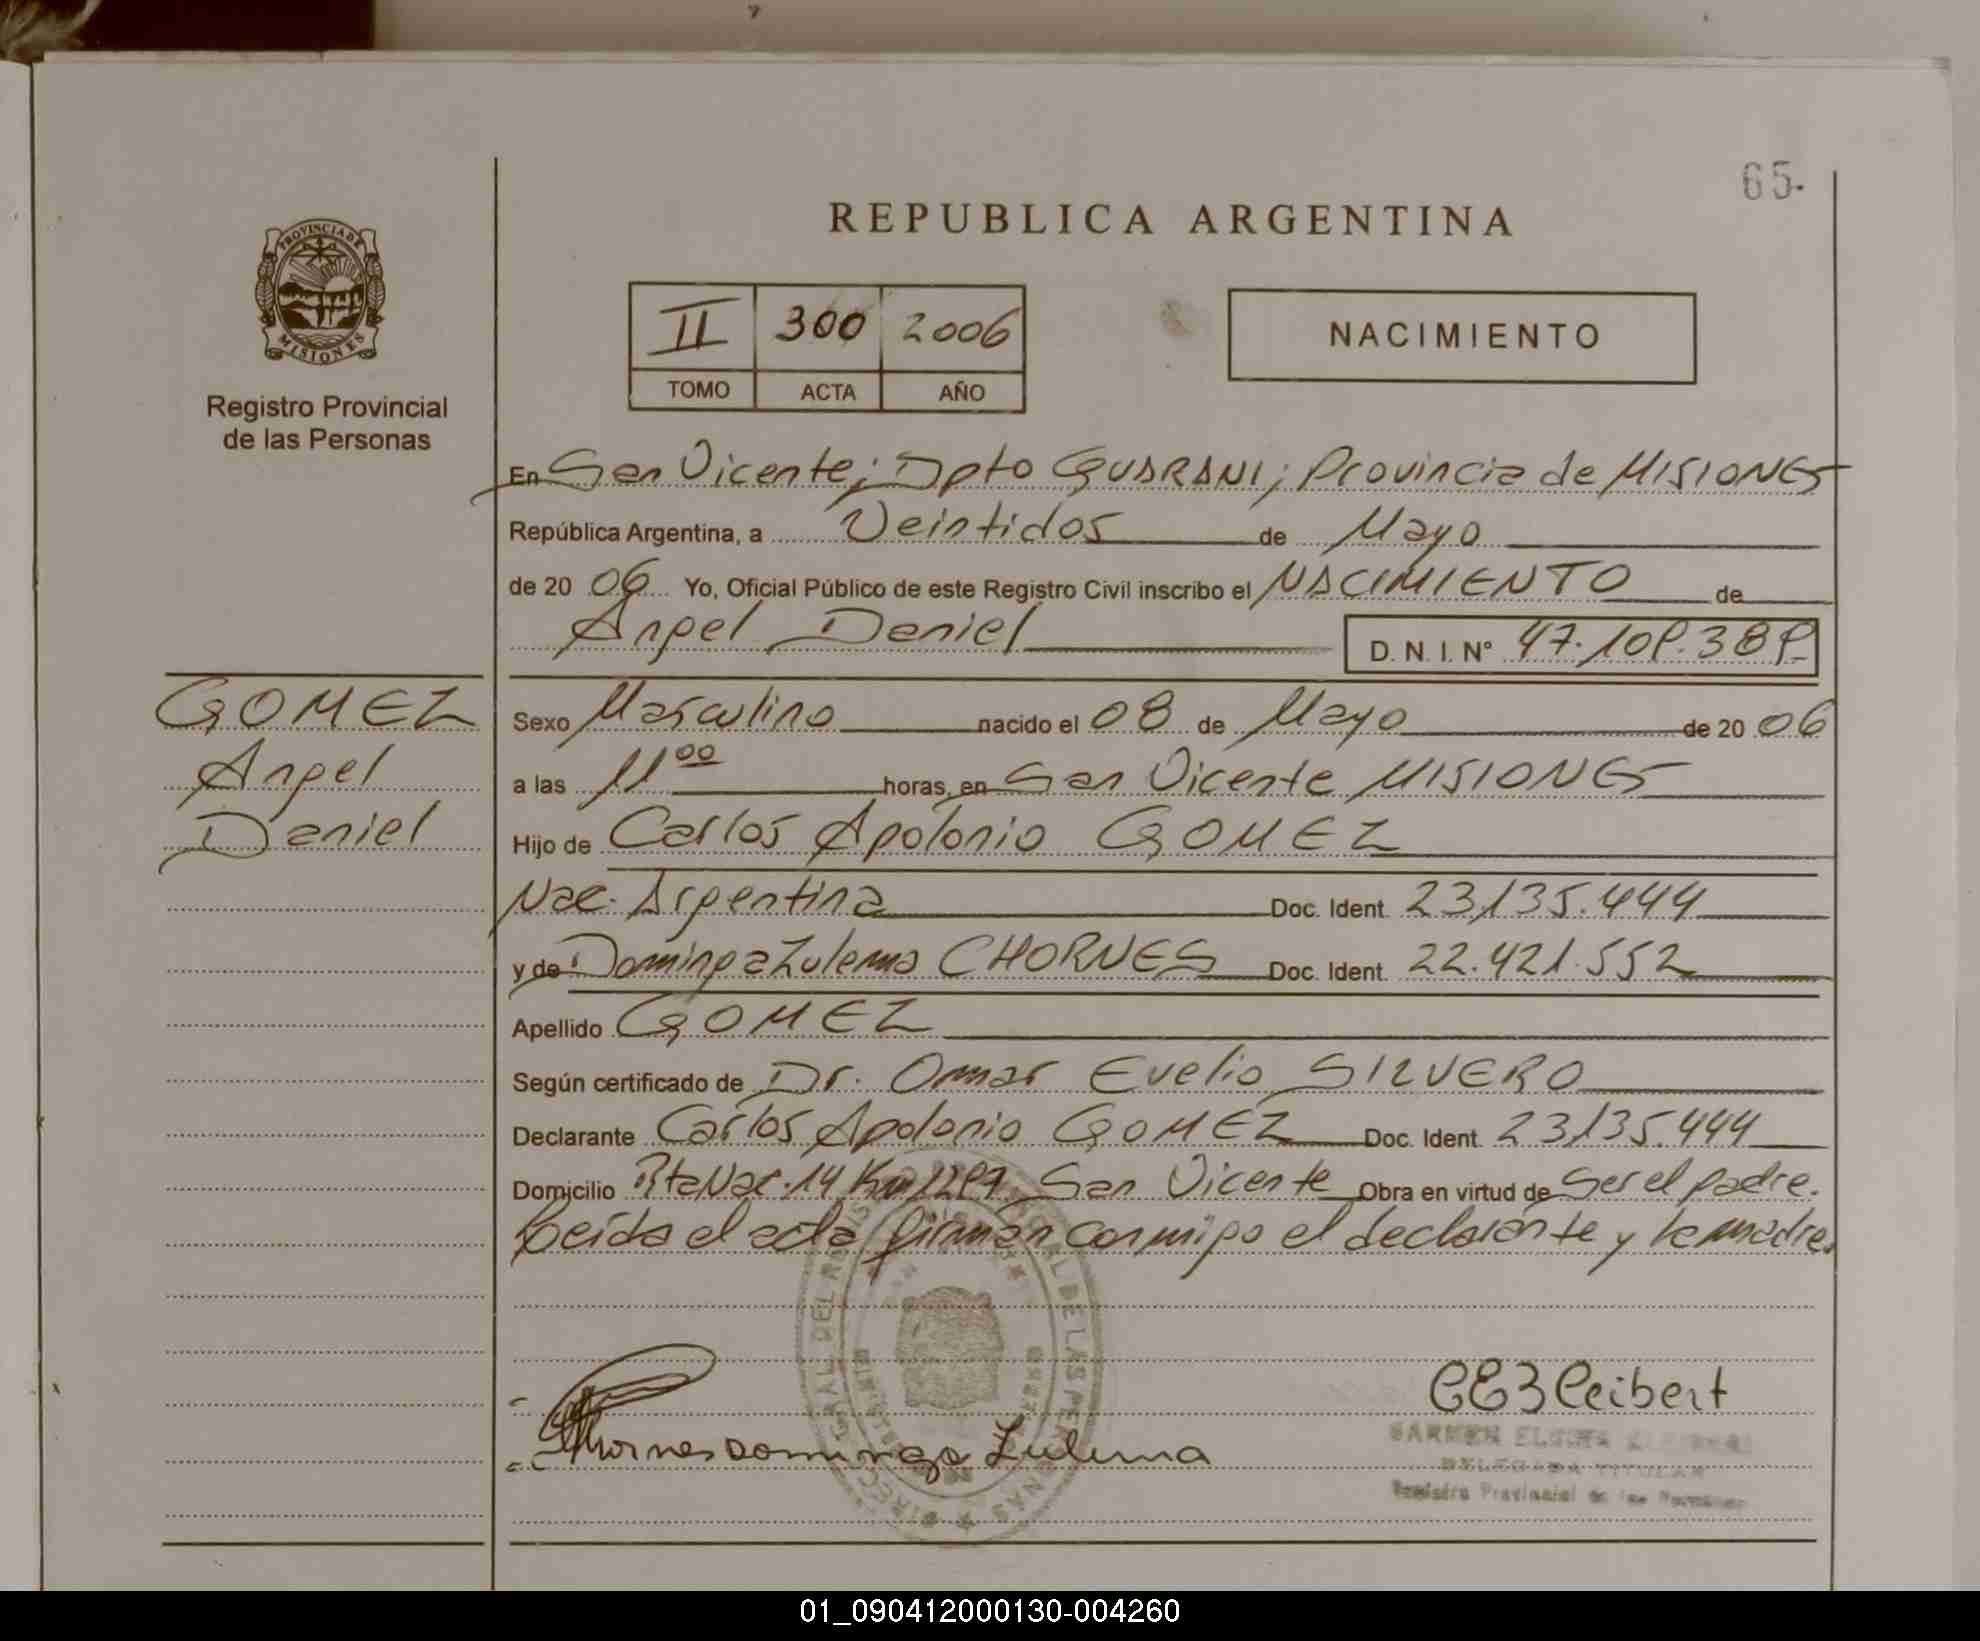 65.
REPUBLICA ARGENTINA
PROVINCIA DE
MISIONES
Registro Provincial
de las Personas
II 300 2006
TOMO ACTA AÑO
NACIMIENTO
En San Vicente; Dpto GUARANI; Provincia de MISIONES
República Argentina, a Veintidos de Mayo
de 20 06 Yo, Oficial Público de este Registro Civil inscribo el NACIMIENTO de
Angel Daniel D. N. I. N° 47.109.389
GOMEZ
Angel
Daniel
Sexo Masculino nacido el 08 de Mayo de 20 06
a las 11 00 horas, en San Vicente MISIONES
Hijo de Carlos Apolonio GOMEZ
Nac. Argentina Doc. Ident. 23.135.444
y de Dominga Zulema CHORNES Doc. Ident. 22.421.552
Apellido GOMEZ
Según certificado de Dr. Omar Evelio SILVERO
Declarante Carlos Apolonio GOMEZ Doc. Ident. 23.135.444
Domicilio Rta Nac. 14 Km 1297 San Vicente Obra en virtud de Ser el padre.
Leída el acta firman conmigo el declarante y la madre.
Chornes Dominga Zulema
DELEGADA TITULAR
Registro Provincial de las Personas
01_090412000130-004260